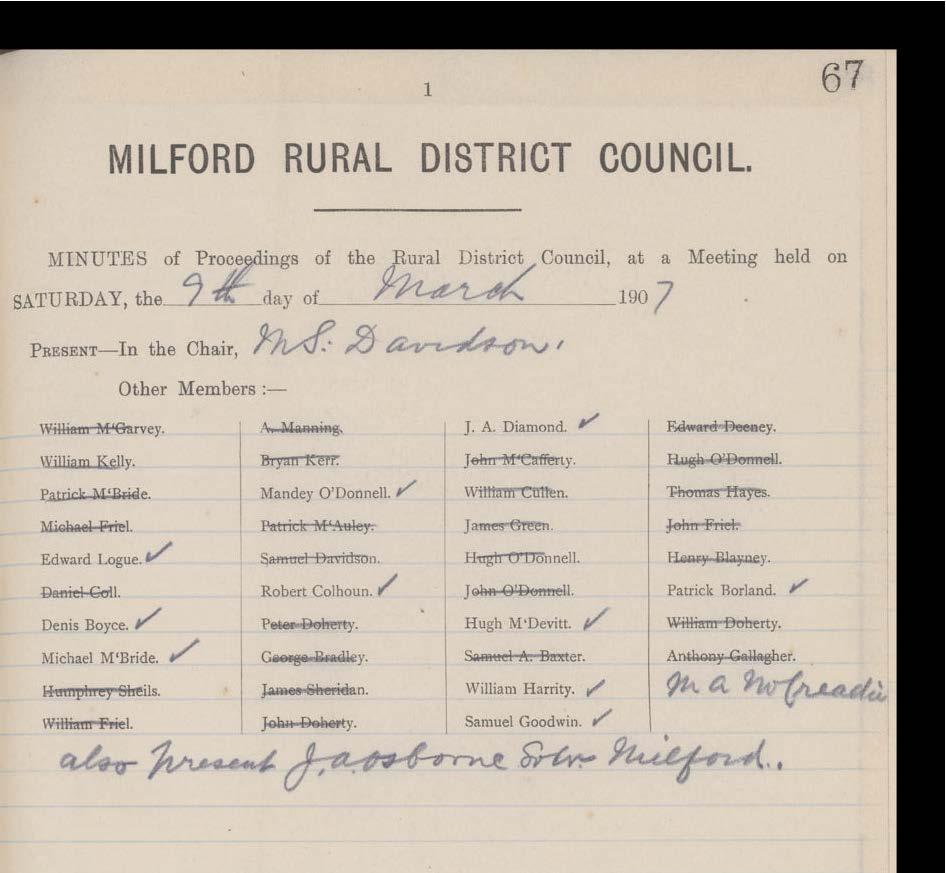 67
1
MILFORD RURAL DISTRICT COUNCIL.
MINUTES of Proceedings of the Rural District Council, at a Meeting held on
SATURDAY, the 9th day of March 1907
PRESENT—In the Chair, Mr S. Davidson.
Other Members :—
William M‘Garvey.
William Kelly.
Patrick M‘Bride.
Michael Friel.
Edward Logue. ✓
Daniel Coll.
Denis Boyce. ✓
Michael M‘Bride. ✓
Humphrey Sheils.
William Friel.
A. Manning.
Bryan Kerr.
Mandey O’Donnell. ✓
Patrick M‘Auley.
Samuel Davidson.
Robert Colhoun. ✓
Peter Doherty.
George Bradley.
James Sheridan.
John Doherty.
J. A. Diamond. ✓
John M‘Cafferty.
William Cullen.
James Green.
Hugh O’Donnell.
John O’Donnell.
Hugh M‘Devitt. ✓
Samuel A. Baxter.
William Harrity. ✓
Samuel Goodwin. ✓
Edward Deeney.
Hugh O’Donnell.
Thomas Hayes.
John Friel.
Henry Blayney.
Patrick Borland. ✓
William Doherty.
Anthony Gallagher.
M A McCreadie
also present J. A. Osborne Solr. Milford.